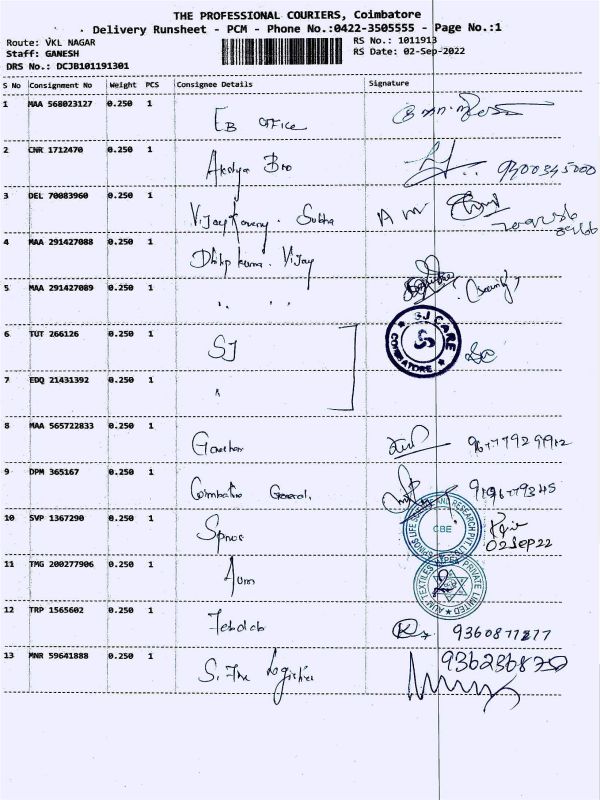 THE PROFESSIONAL COURIERS, Coimbatore
Delivery Runsheet - PCM - Phone No.:0422-3505555 - Page No.:1
Route: VKL NAGAR
Staff: GANESH
DRS No.: DCJB101191301
RS No.: 1011913
RS Date: 02-Sep-2022
S No Consignment No Weight PCS Consignee Details Signature
1 MAA 568023127 0.250 1 EB office
2 CNR 1712470 0.250 1
9400345000
3 DEL 70083960 0.250 1 Vijay Subha
4 MAA 291427088 0.250 1 Vijay
5 MAA 291427089 0.250 1 " "
6 TUT 266126 0.250 1 SJ
SJ CARE
COIMBATORE
7 EDQ 21431392 0.250 1 "
8 MAA 565722833 0.250 1 Gowtham
9 DPM 365167 0.250 1 Coimbatore General.
10 SVP 1367290 0.250 1 Spnos
SPINOS LIFE AND RESEARCH PVT. LTD
CBE
02 Sep 22
11 TMG 200277906 0.250 1 Aum
AUM TEXTILES PRIVATE LIMITED
12 TRP 1565602 0.250 1
13 MNR 59641888 0.250 1 Logistics